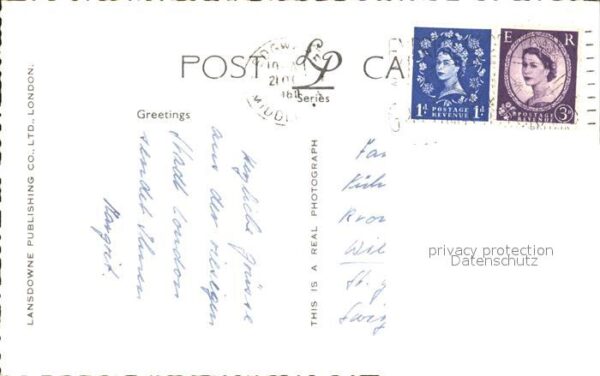 POST CA
LP
Series
Greetings
Herzliche Grüsse
aus der riesigen
Stadt London
sendet Ihnen
Margrit.
LANSDOWNE PUBLISHING CO., LTD., LONDON.
THIS IS A REAL PHOTOGRAPH
1D POSTAGE REVENUE 1D
E R
POSTAGE REVENUE 3D
Wil
St. G
privacy protection
Datenschutz